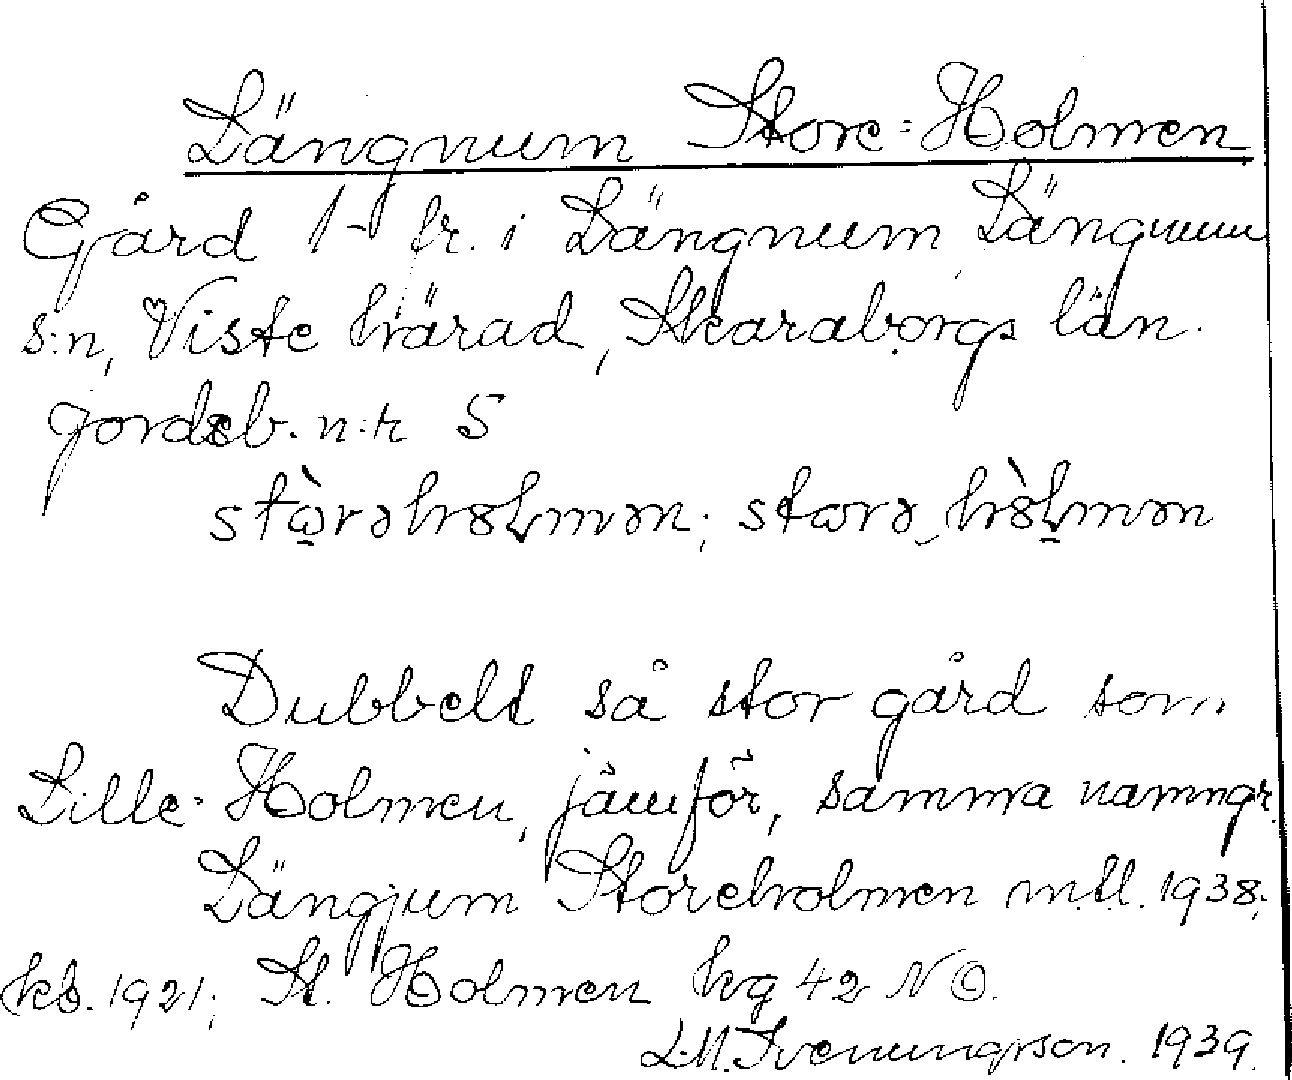 Längnum Store-Holmen
Gård 1- fr. i Längnum, Längnum
s:n, Viste härad, Skaraborgs län.
jordeb. n:r 5
stòrəhɷlmən; storə hɷ̀lmən
Dubbelt så stor gård som
Lille-Holmen, jämför, samma namngr.
Längjum Storeholmen m.ll. 1938;
kb. 1921; St. Holmen hg 42 NO.
L.M. Svenungsson. 1939.